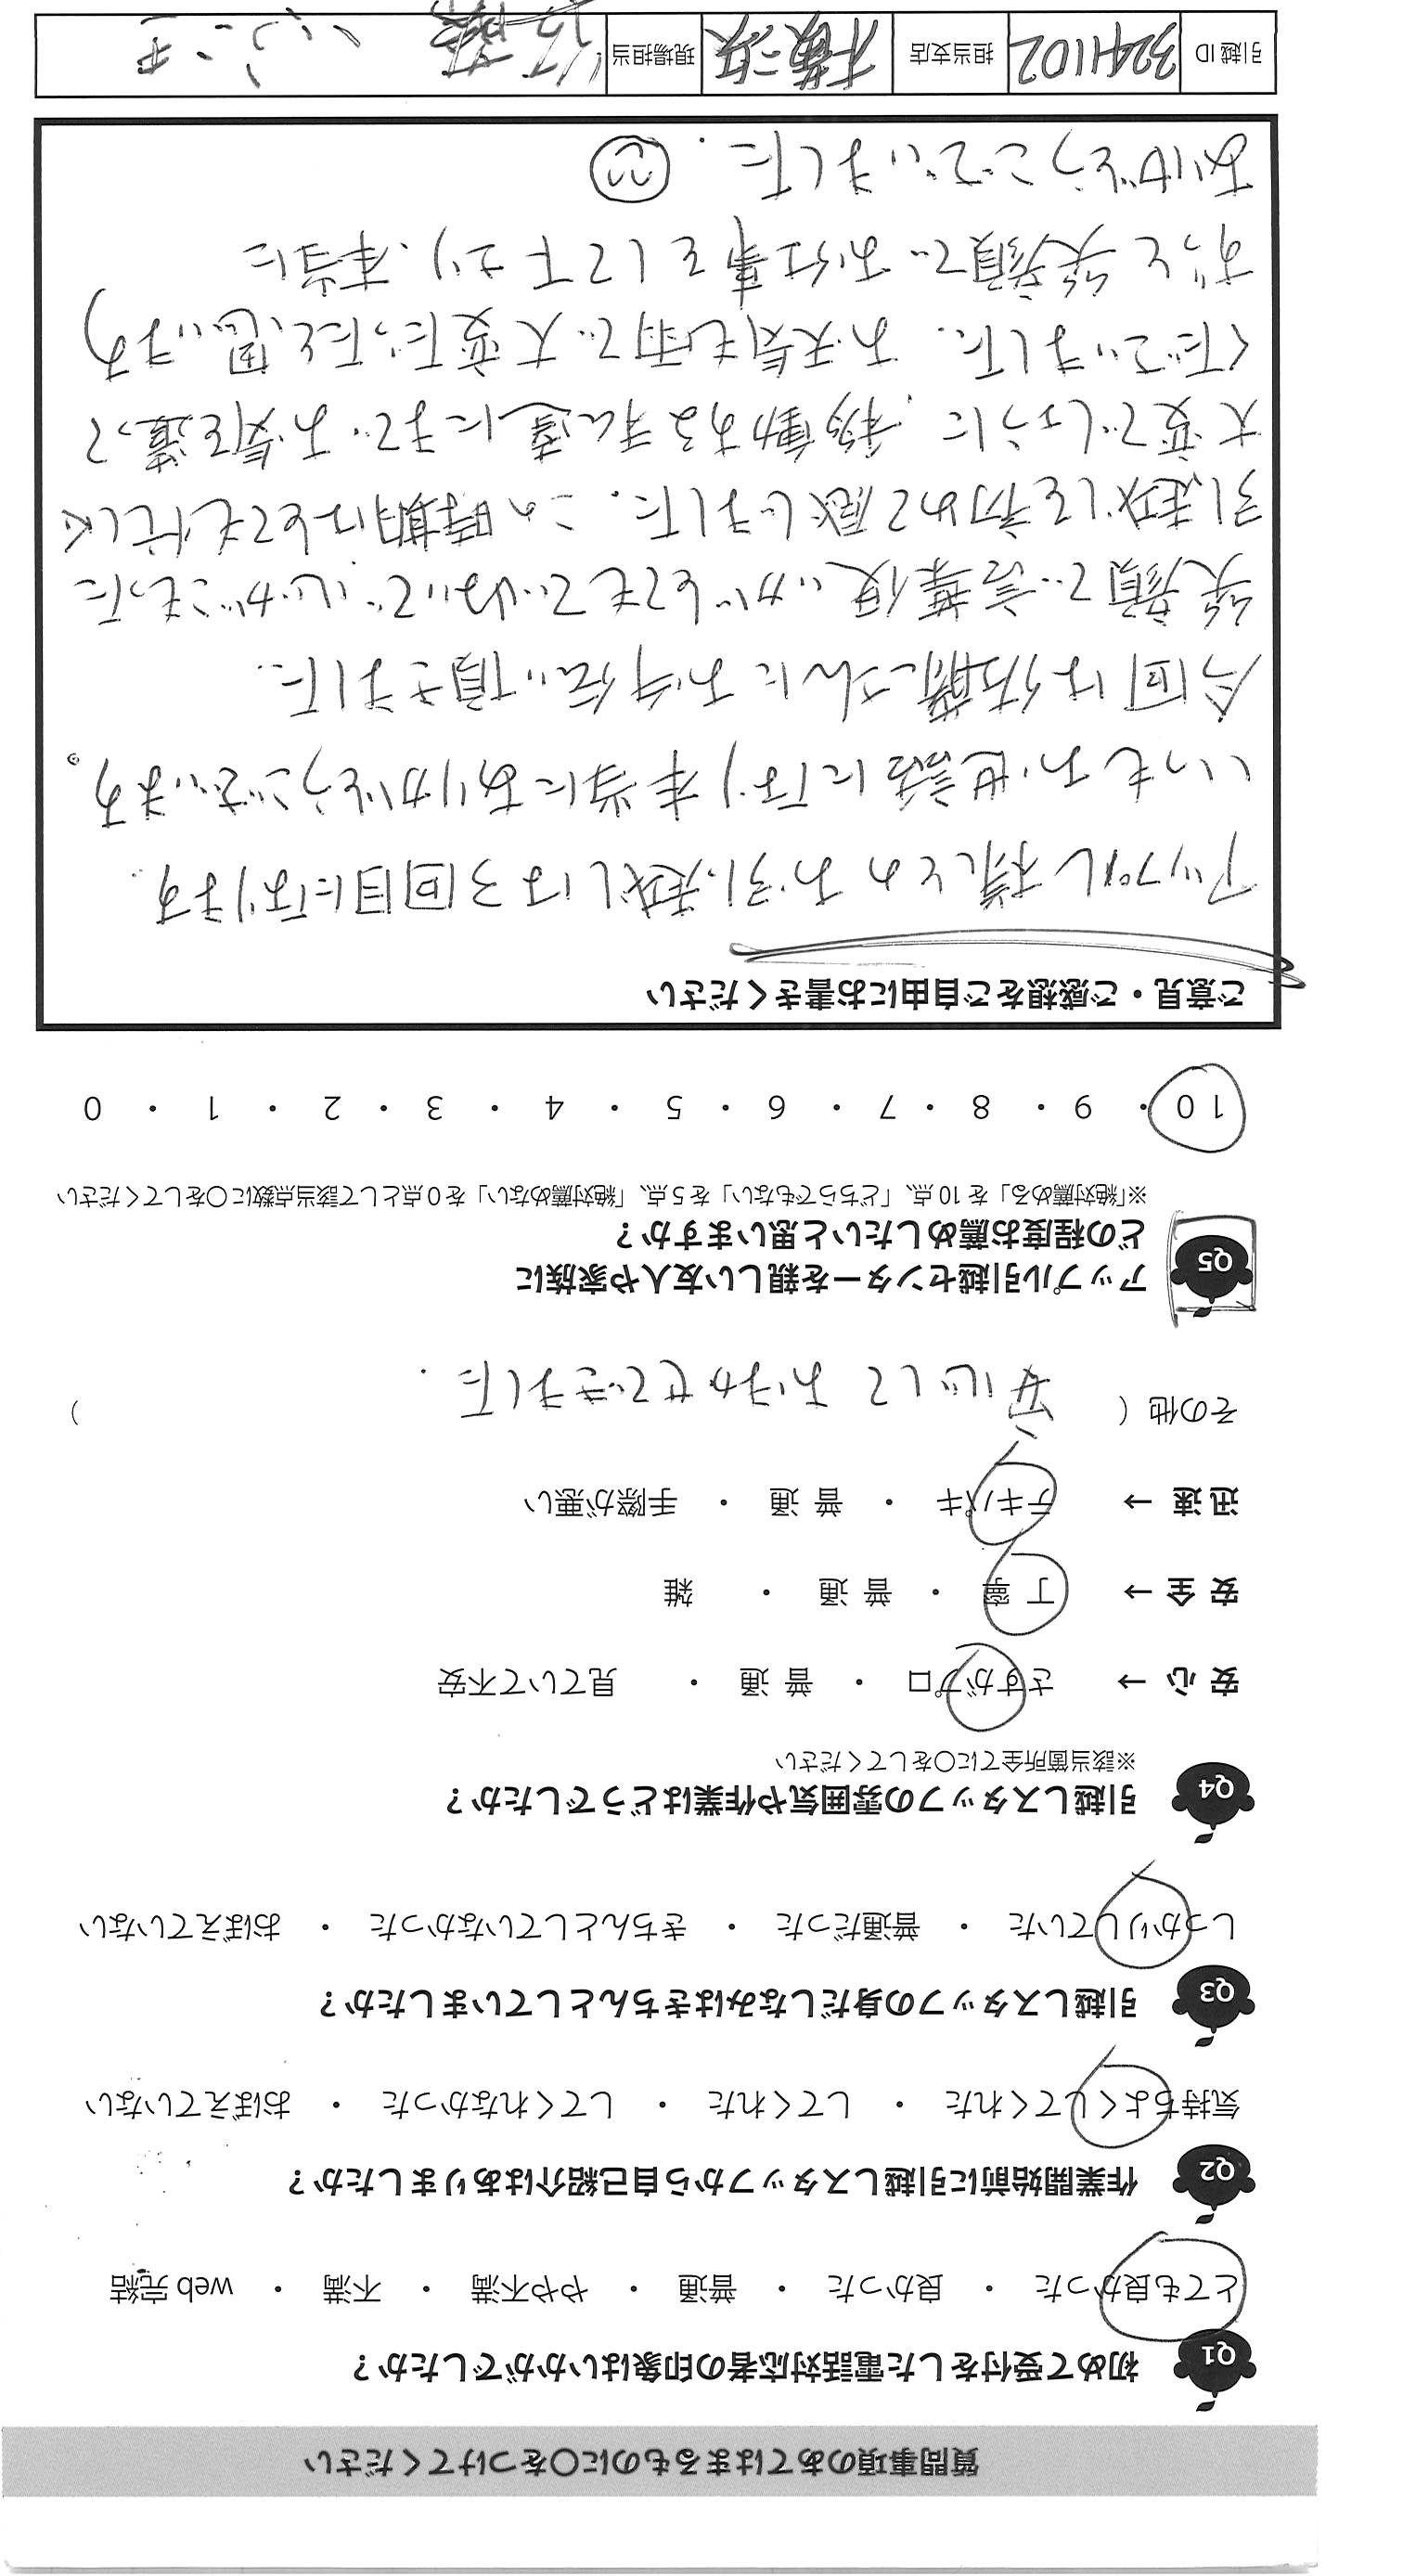 質問事項のあてはまるものに○をつけてください
Q1 初めて受付をした電話対応者の印象はいかがでしたか？
とても良かった ・ 良かった ・ 普通 ・ やや不満 ・ 不満 ・ web 完結
Q2 作業開始前に引越しスタッフから自己紹介はありましたか？
気持ちよくしてくれた ・ してくれた ・ してくれなかった ・ おぼえていない
Q3 引越しスタッフの身だしなみはきちんとしていましたか？
しっかりしていた ・ 普通だった ・ きちんとしていなかった ・ おぼえていない
Q4 引越しスタッフの雰囲気や作業はどうでしたか？
※該当箇所全てに○をしてください
安 心 → さすがプロ ・ 普 通 ・ 見ていて不安
安 全 → 丁 寧 ・ 普 通 ・ 雑
迅 速 → テキパキ ・ 普 通 ・ 手際が悪い
その他（ 安心して おまかせできました. ）
Q5 アップル引越センターを親しい友人や家族に
どの程度お薦めしたいと思いますか？
※「絶対薦める」を 10 点、「どちらでもない」を 5 点、「絶対薦めない」を 0 点として該当点数に○をしてください
10 ・ 9 ・ 8 ・ 7 ・ 6 ・ 5 ・ 4 ・ 3 ・ 2 ・ 1 ・ 0
ご意見・ご感想をご自由にお書きください
アップル様とのお引越しは3回目になります.
いつもお世話になり本当にありがとうございます。
今回は佐藤さんにお手伝い頂きました.
笑顔で言葉使いがとてもていねいで、心がこもった
引越しを初めて感じました. この時期はとても忙しく
大変でしょうに、移動する私達にまでお気を遣って
くださいました. お天気も雨で大変だったと思いますが
ずっと笑顔でお仕事をして下さり、本当に
ありがとうございました.
引越 ID 3241102 担当支店 横浜 現場担当 佐藤